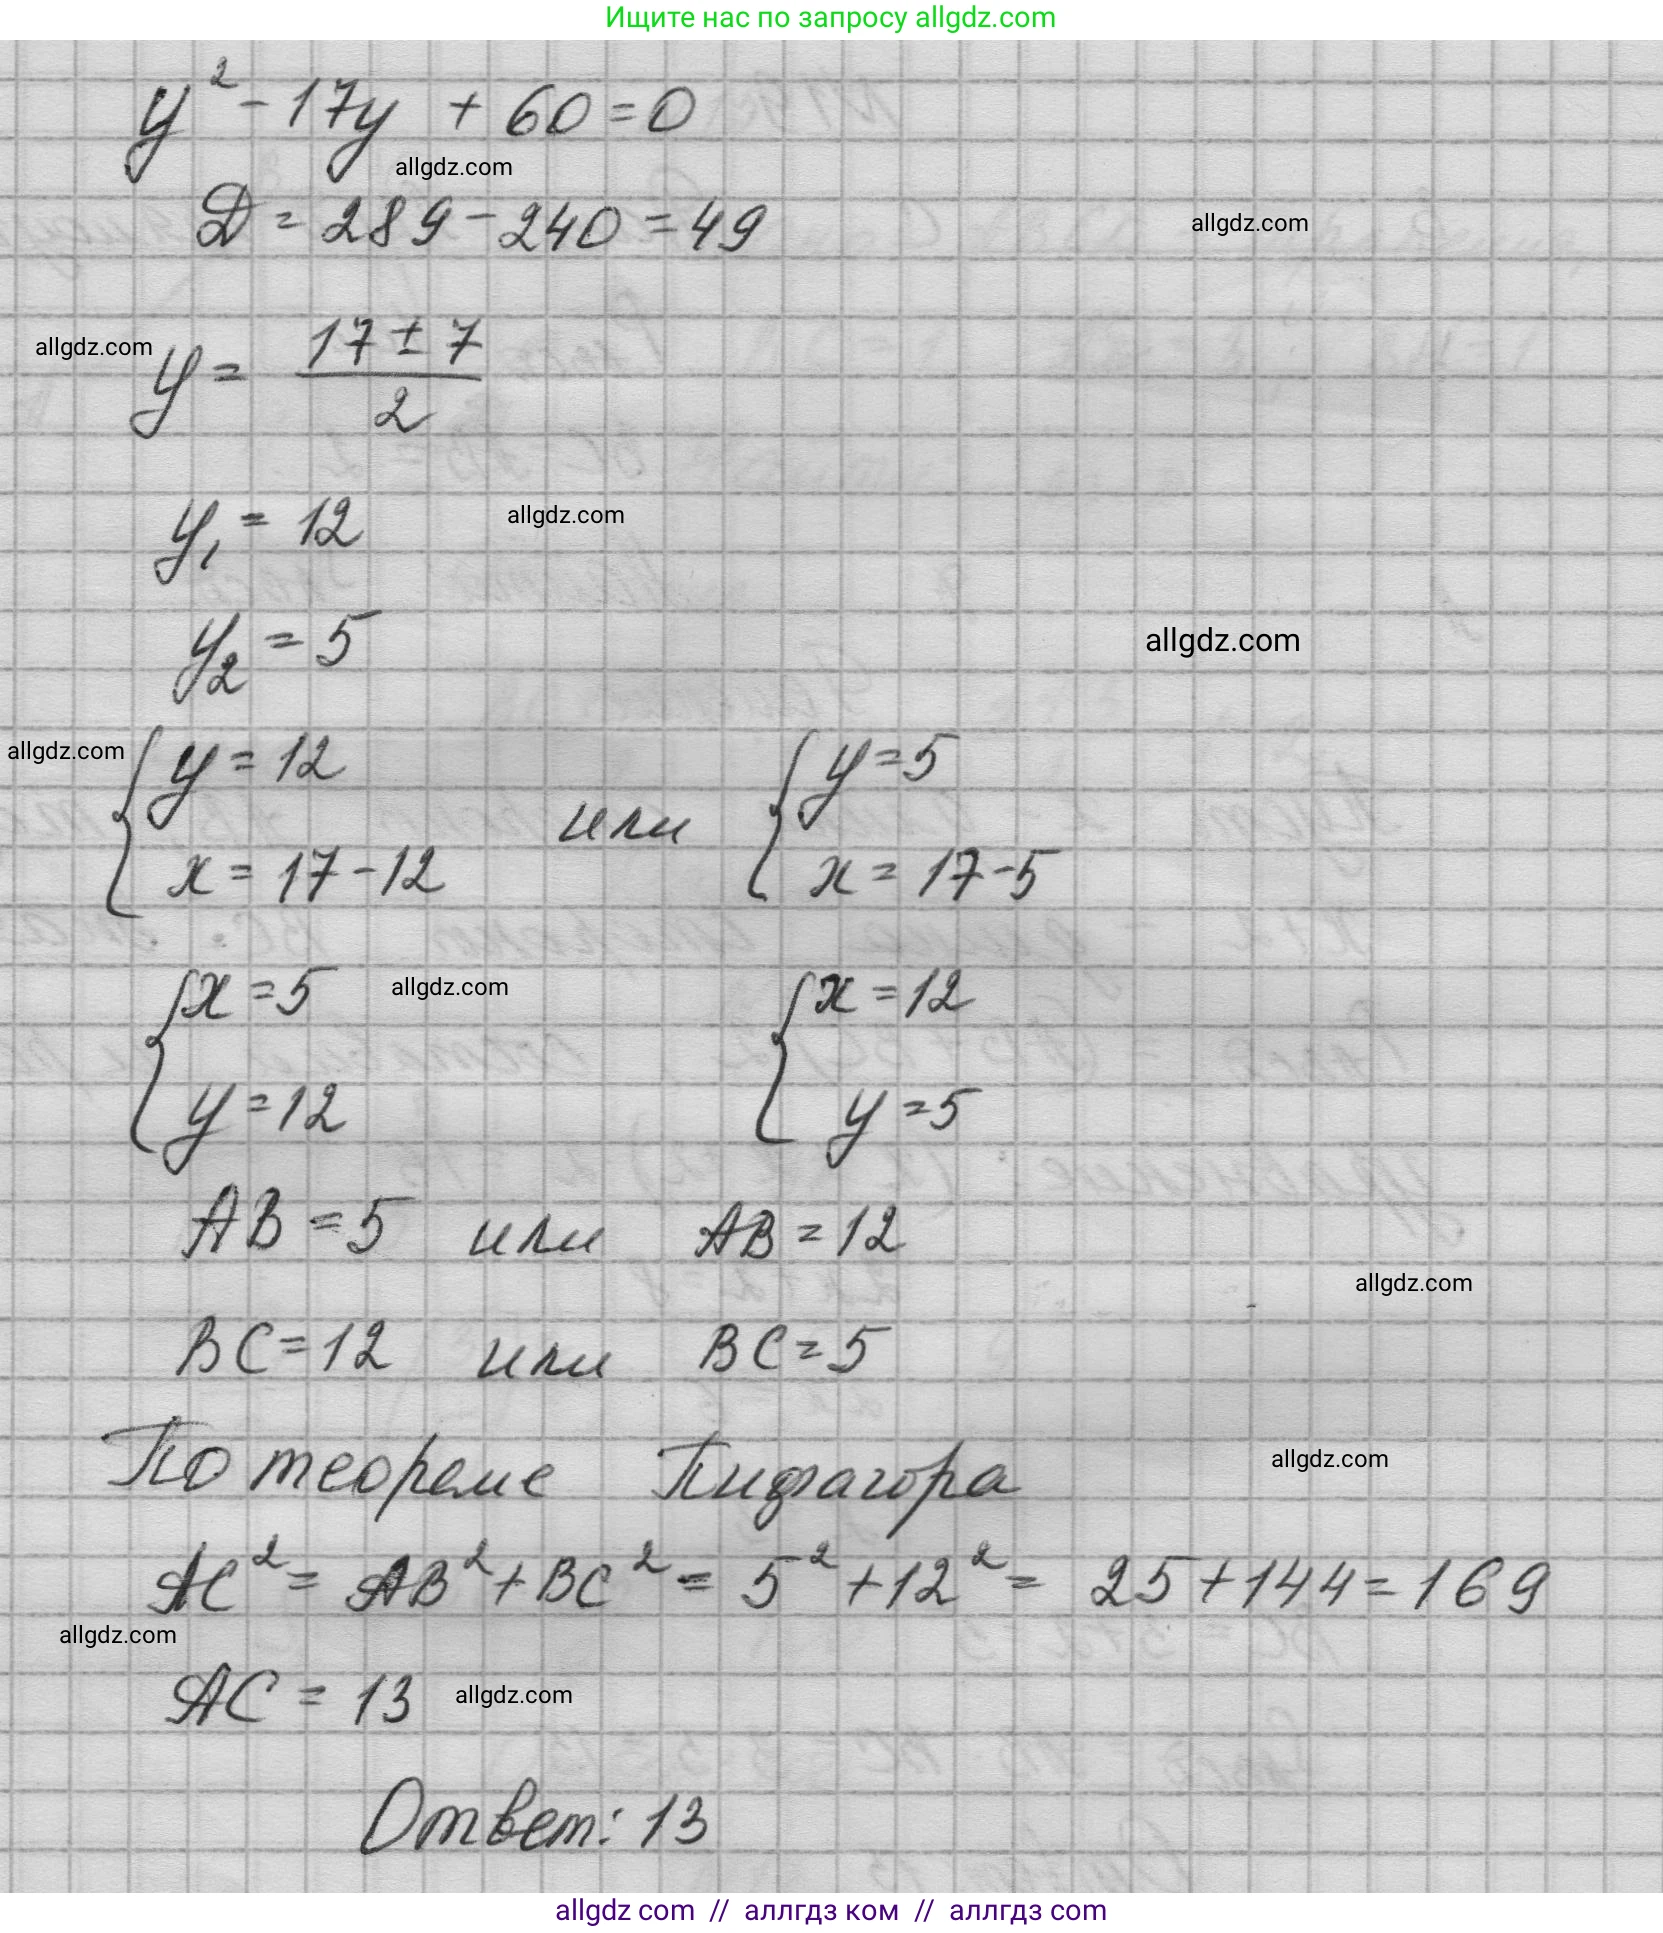 Ищите нас по запросу allgdz.com
y² - 17y + 60 = 0
allgdz.com
D = 289 - 240 = 49
allgdz.com
allgdz.com
y = (17 ± 7)/2
y₁ = 12
allgdz.com
y₂ = 5
allgdz.com
allgdz.com
{ y = 12 или { y = 5
x = 17 - 12 x = 17 - 5
{ x = 5 allgdz.com { x = 12
y = 12 y = 5
AB = 5 или AB = 12
allgdz.com
BC = 12 или BC = 5
По теореме Пифагора
allgdz.com
AC² = AB² + BC² = 5² + 12² = 25 + 144 = 169
allgdz.com
AC = 13 allgdz.com
Ответ: 13
allgdz com // аллгдз ком // аллгдз com